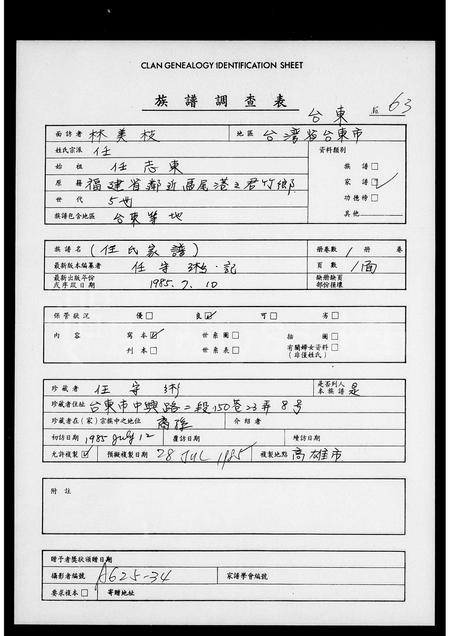 CLAN GENEALOGY IDENTIFICATION SHEET
族譜調查表
台東 63
面訪者 林美枝 地區 台灣省台東市
姓氏宗派 任 資料類別
始祖 任志東 族譜□
原籍 福建省鄰近區尾港之君竹鄉 家譜☑
世代 5世 功德榜□
族譜包含地區 台東等地 其他
族譜名 (任氏家譜) 冊卷數 1 冊 卷
最新版本編纂者 任守洲·記 頁數 1面
最新出版年份或序跋日期 1985.7.10 缺冊缺頁部份損壞
保管狀況 優□ 良☑ 可□ 劣□
內容 寫本☑ 世系圖□ 插圖□
刊本□ 世系表□ 有關婦女資料□
(非僅姓氏)
珍藏者 任守洲 是否列入本族譜 是
珍藏者住址 台東市中興路二段150巷23弄8號
珍藏者在(家)宗族中之地位 裔孫 介紹者
初訪日期 1985 July 12 覆訪日期 續訪日期
允許複製☑ 預擬複製日期 28 JUL 1985 複製地點 高雄市
附註
贈予者獎狀頒贈日期
攝影者編號 A625-34 家譜學會編號
要求複本□ 寄贈地址